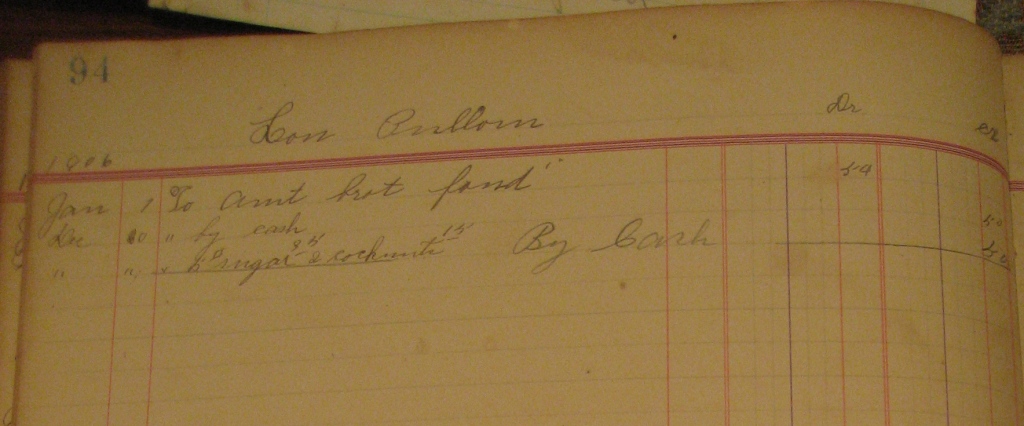 94
Lon Pullom Dr. cr
1906
Jan 1 To amt brot forid 50
Dec 20 " by cash 50
" " " 5# sugar 25 2 cocknuts 15 By Cash 50